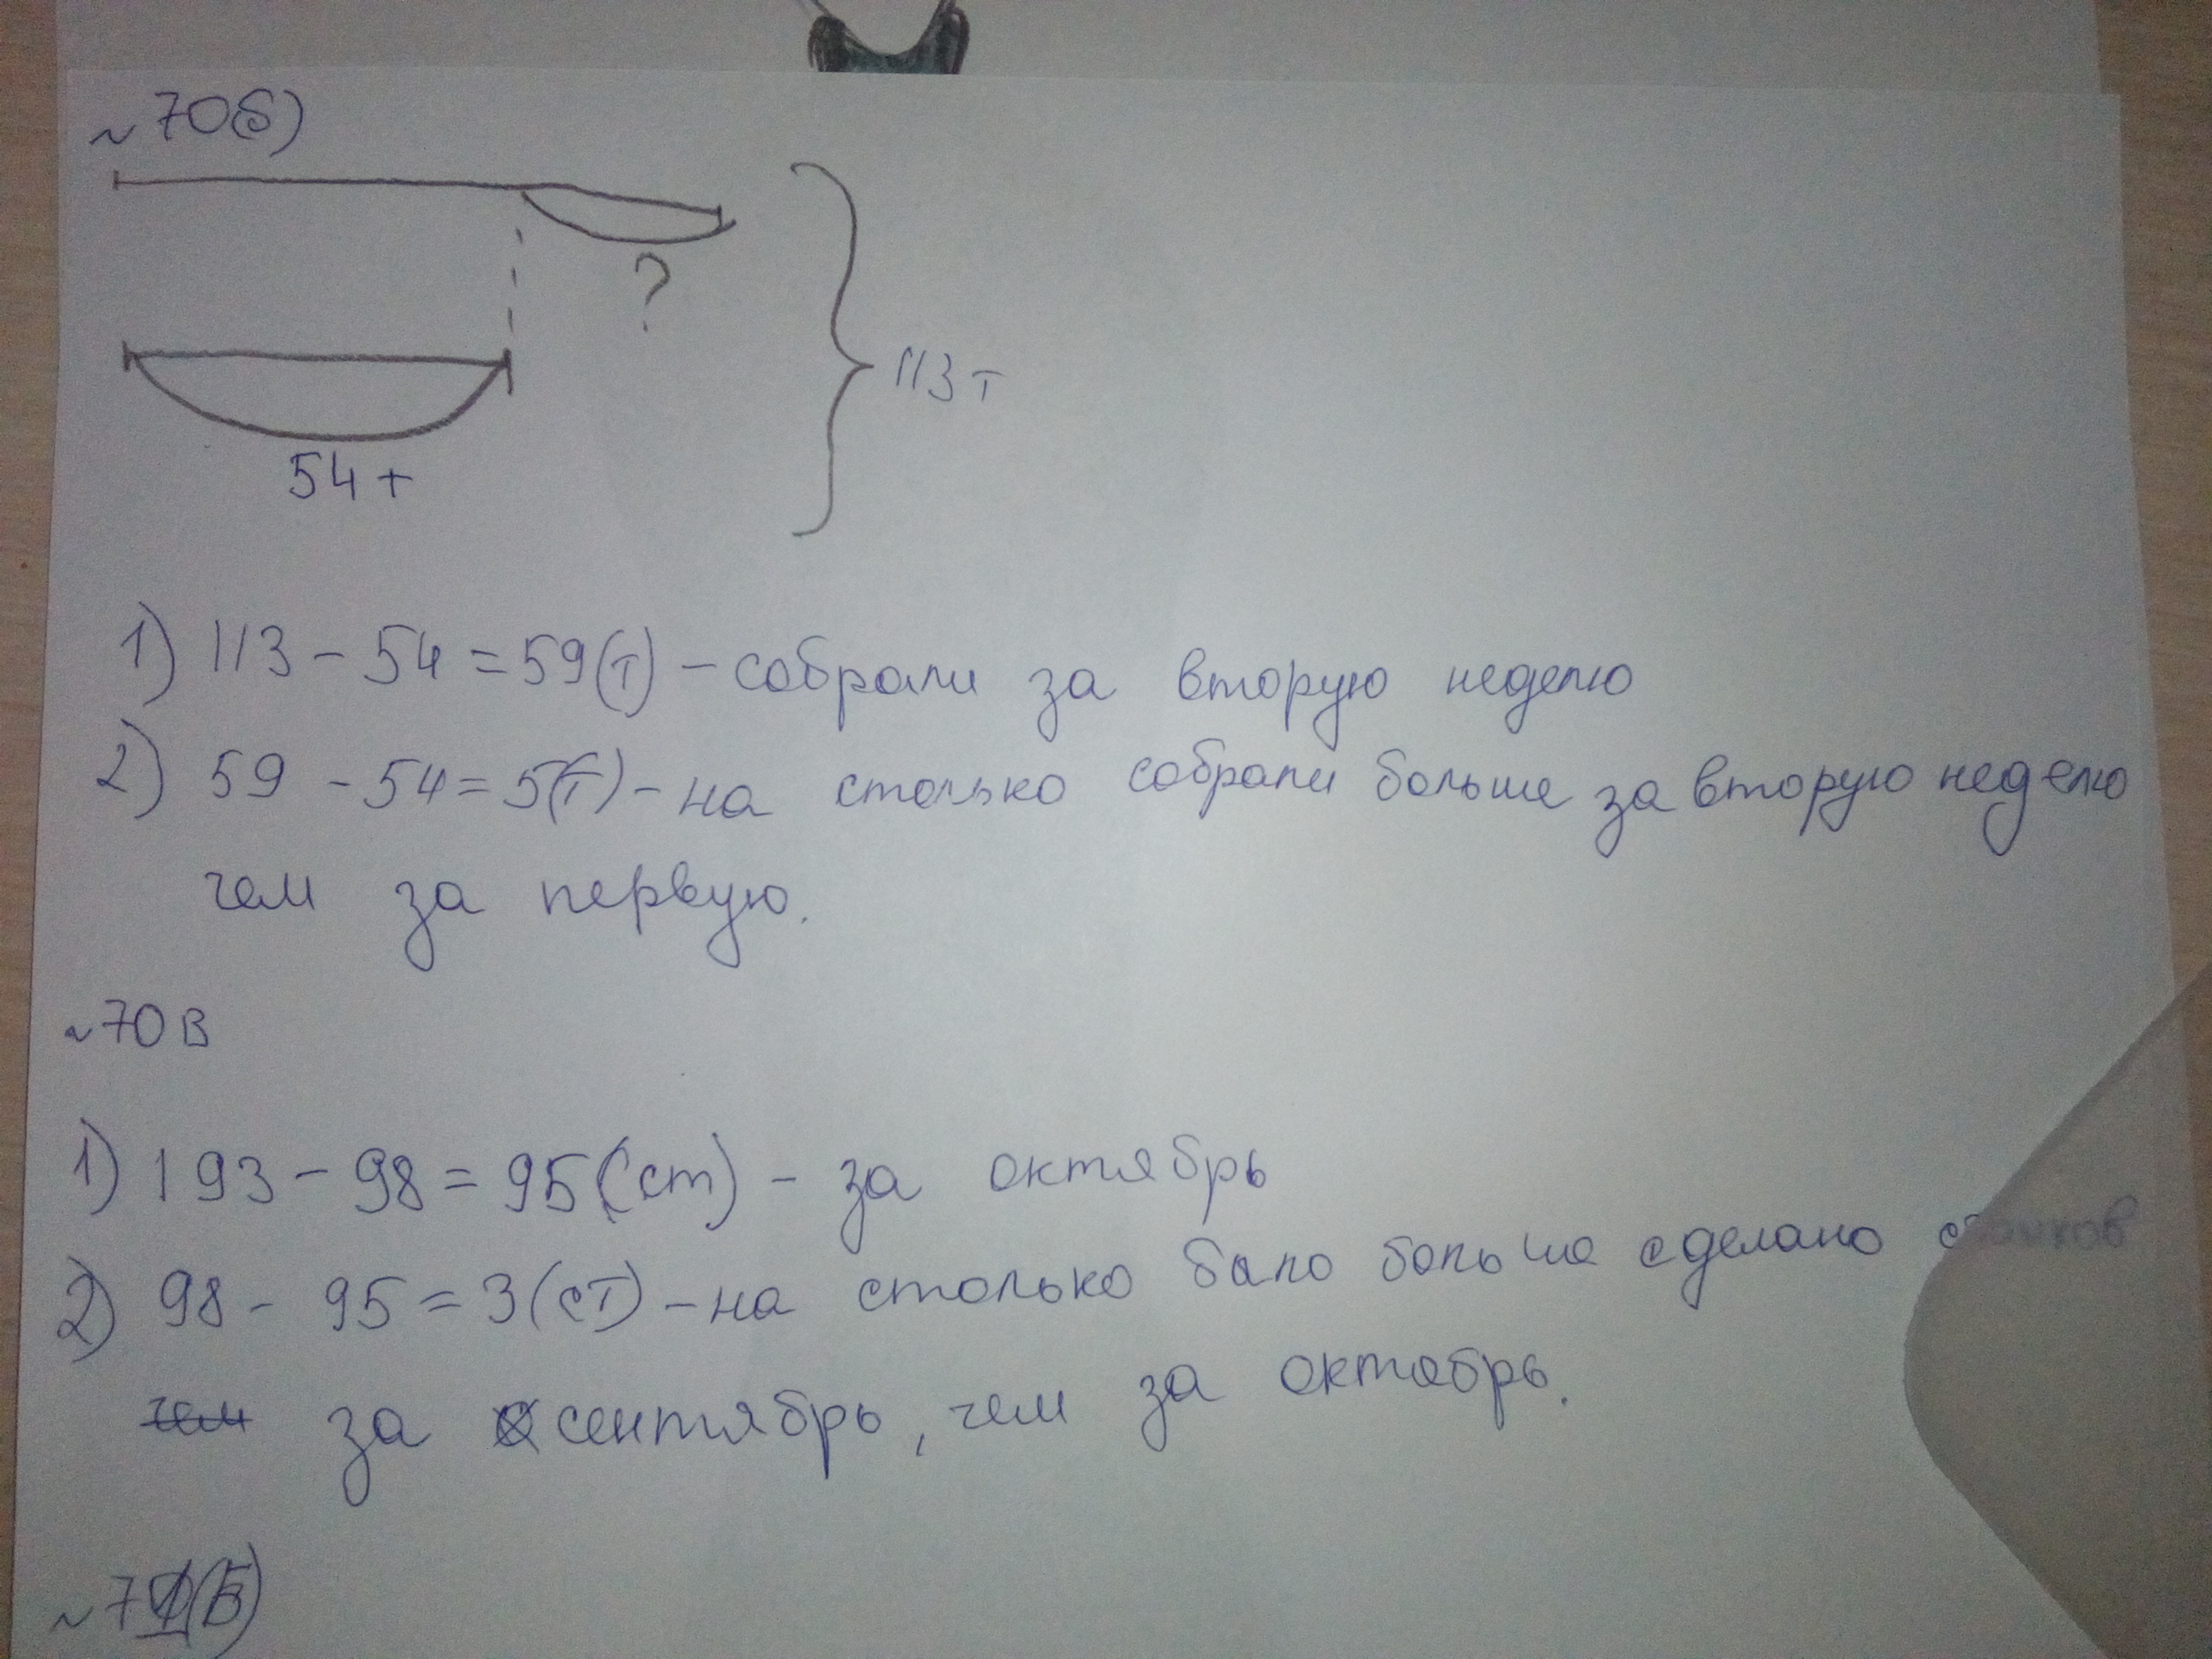 ~70(б)
?
113 т
54 т
1) 113 - 54 = 59(т) - собрали за вторую неделю
2) 59 - 54 = 5(т) - на столько собрали больше за вторую неделю
чем за первую.
~70 в
1) 193 - 98 = 95(ст) - за октябрь
2) 98 - 95 = 3(ст) - на столько было больше сделано станков
чем за сентябрь, чем за октябрь.